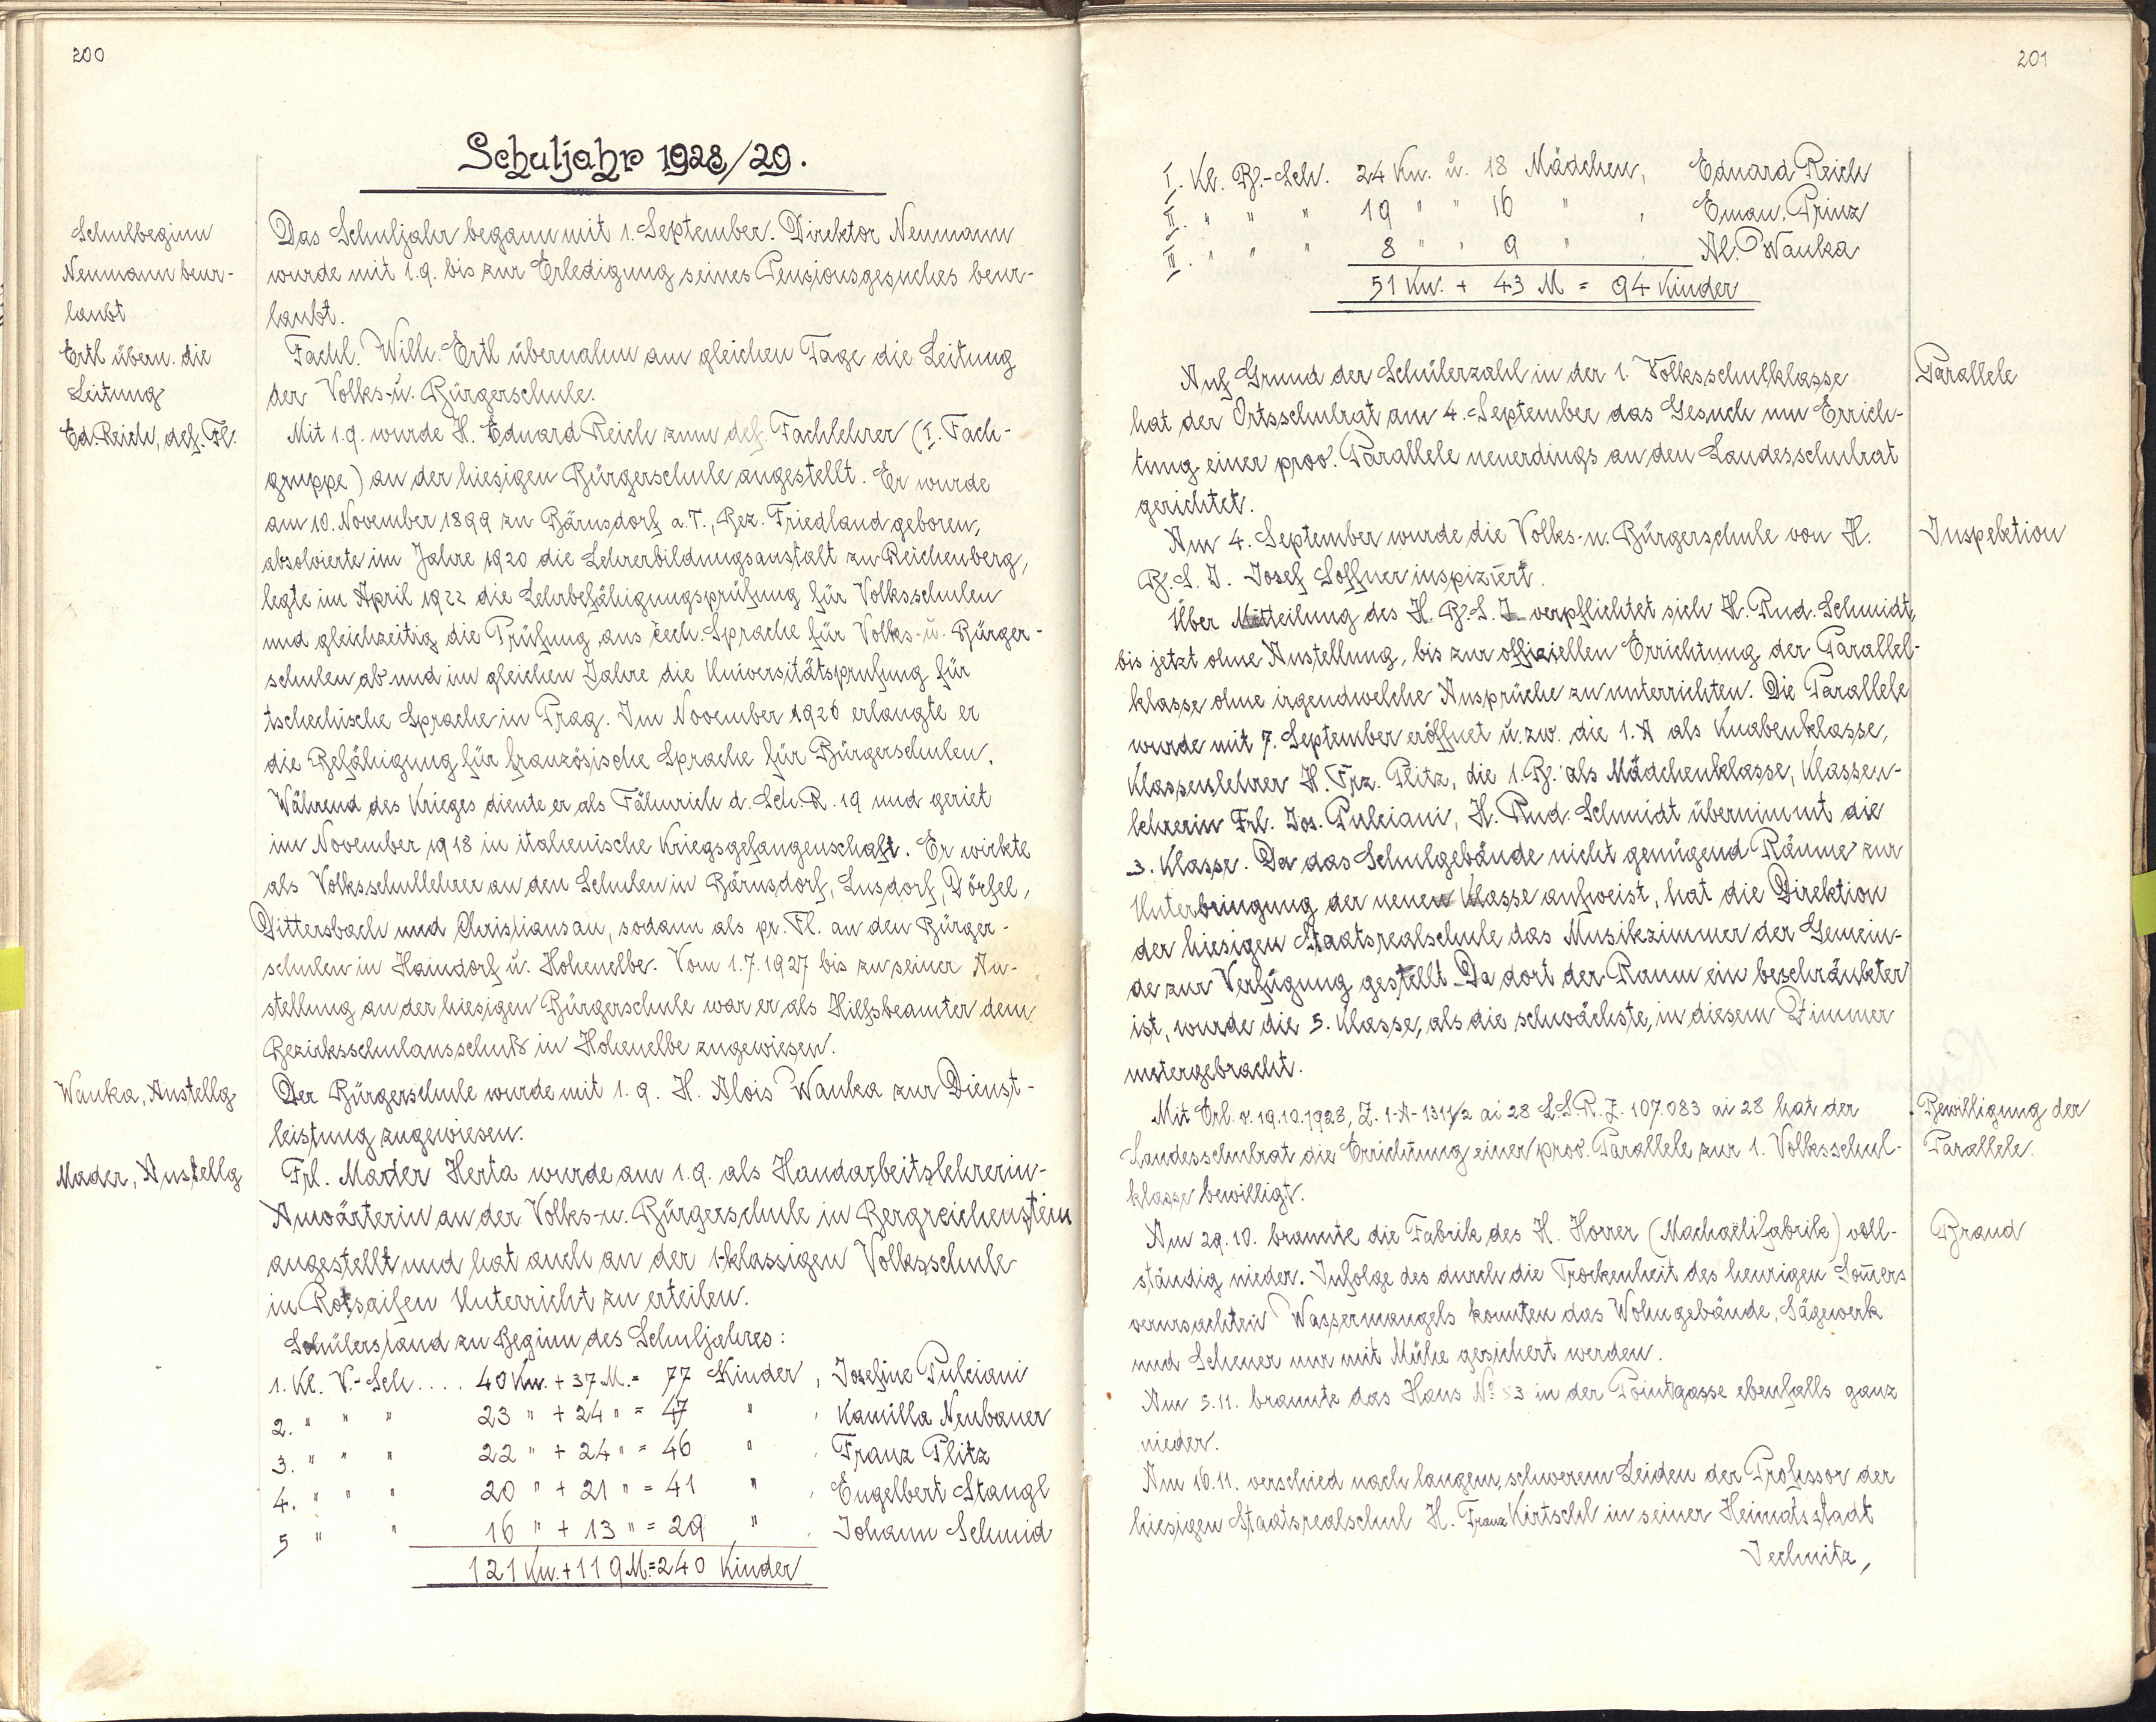 200
Schuljahr 1928/29.
Schulbeginn
Neumann beur-
laubt
Ertl übern. die
Leitung
Ed. Reich, def. Fl.
Das Schuljahr begann mit 1. September. Direktor Neumann
wurde mit 1.9. bis zur Erledigung seines Pensionsgesuches beur-
laubt.
Fachl. Willi. Ertl übernahm am gleichen Tage die Leitung
der Volks- u. Bürgerschule.
Mit 1.9. wurde H. Eduard Reich zum def. Fachlehrer (I. Fach-
gruppe) an der hiesigen Bürgerschule angestellt. Er wurde
am 10. November 1899 zu Bärnsdorf a. T., Bez. Friedland geboren,
absolvierte im Jahre 1920 die Lehrerbildungsanstalt zu Reichenberg,
legte im April 1922 die Lehrbefähigungsprüfung für Volksschulen
und gleichzeitig die Prüfung aus čech. Sprache für Volks- u. Bürger-
schulen ab und im gleichen Jahre die Universitätsprüfung für
tschechische Sprache in Prag. Im November 1926 erlangte er
die Befähigung für französische Sprache für Bürgerschulen.
Während des Krieges diente er als Fähnrich d. Sch. R. 19 und geriet
im November 1918 in italienische Kriegsgefangenschaft. Er wirkte
als Volksschullehrer an den Schulen in Bärnsdorf, Lusdorf, Dörfel,
Dittersbach und Christiansau, sodann als pr. Fl. an den Bürger-
schulen in Haindorf u. Hohenelbe. Vom 1.7.1927 bis zu seiner An-
stellung an der hiesigen Bürgerschule war er als Hilfsbeamter dem
Bezirksschulausschuß in Hohenelbe zugewiesen.
Wanka, Anstellg
Der Bürgerschule wurde mit 1.9. H. Alois Wanka zur Dienst-
leistung zugewiesen.
Mader, Anstellg
Frl. Mader Herta wurde am 1.9. als Handarbeitslehrerin-
Anwärterin an der Volks- u. Bürgerschule in Bergreichenstein
angestellt und hat auch an der 1-klassigen Volksschule
in Rotsaifen Unterricht zu erteilen.
Schülerstand zu Beginn des Schuljahres:
1. Kl. V.-Sch.... 40 Kn. + 37 M. = 77 Kinder, Josefine Pulciani
2. " " " 23 " + 24 " = 47 " , Kamilla Neubauer
3. " " " 22 " + 24 " = 46 " , Franz Plitz
4. " " " 20 " + 21 " = 41 " , Engelbert Stangl
5 " " 16 " + 13 " = 29 " . Johann Schmid
121 Kn. + 119 M. = 240 Kinder
201
I. Kl. B.-Sch. 24 Kn. u. 18 Mädchen, Eduard Reich
II. " " " 19 " " 16 " , Eman. Prinz
III. " " " 8 " " 9 " . Al. Wanka
51 Kn. + 43 M = 94 Kinder
Auf Grund der Schülerzahl in der 1. Volksschulklasse
hat der Ortsschulrat am 4. September das Gesuch um Errich-
tung einer prov. Parallele neuerdings an den Landesschulrat
gerichtet.
Parallele
Am 4. September wurde die Volks- u. Bürgerschule von H.
B. S. I. Josef Loffner inspiziert.
Inspektion
Über Mitteilung des H. B. S. I verpflichtet sich H. Rud. Schmidt,
bis jetzt ohne Anstellung, bis zur offiziellen Errichtung der Parallel-
klasse ohne irgendwelche Ansprüche zu unterrichten. Die Parallele
wurde mit 7. September eröffnet u. zw. die 1. A als Knabenklasse,
Klassenlehrer H. Frz. Plitz, die 1. B. als Mädchenklasse, Klassen-
lehrerin Frl. Jos. Pulciani, H. Rud. Schmidt übernimmt die
3. Klasse. Da das Schulgebäude nicht genügend Räume zur
Unterbringung der neuen Klasse aufweist, hat die Direktion
der hiesigen Staatsrealschule das Musikzimmer der Gemein-
de zur Verfügung gestellt. Da dort der Raum ein beschränkter
ist, wurde die 5. Klasse, als die schwächste, in diesem Zimmer
untergebracht.
Mit Erl. v. 19.10.1928, Z. 1-A-1311/2 ai 28 L.S.R. Z. 107.083 ai 28 hat der
Landesschulrat die Errichtung einer prov. Parallele zur 1. Volksschul-
klasse bewilligt.
Bewilligung der
Parallele.
Am 29.10. brannte die Fabrik des H. Horrer (Machaëlifabrik) voll-
ständig nieder. Infolge des durch die Trockenheit des heurigen Som̄ers
verursachten Wassermangels konnten das Wohngebäude, Sägewerk
und Scheuer nur mit Mühe gesichert werden.
Brand
Am 5.11. brannte das Haus No 53 in der Pointgasse ebenfalls ganz
nieder.
Am 16.11. verschied nach langem, schwerem Leiden der Professor der
hiesigen Staatsrealschul H. Franz Kirtschl in seiner Heimatsstadt
Jechnitz,